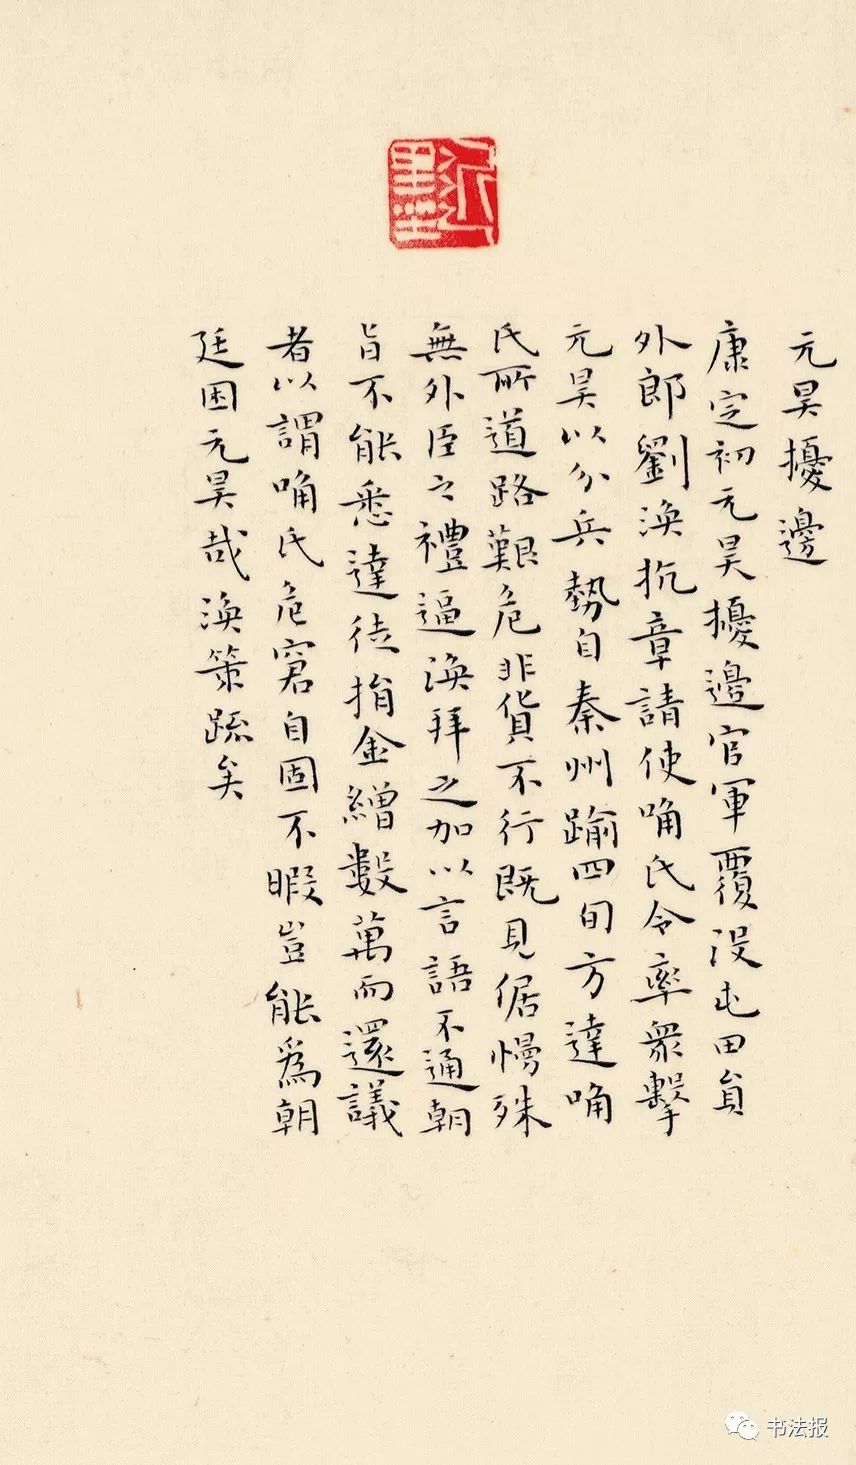 元昊擾邊
康定初元昊擾邊官軍覆没屯田員
外郎劉渙抗章請使唃氏令率衆擊
元昊以分兵勢自秦州踰四旬方達唃
氏所道路艱危非貨不行既見倨慢殊
無外臣之禮逼渙拜之加以言語不通朝
旨不能悉達徒捐金繒數萬而還議
者以謂唃氏危窘自固不暇豈能爲朝
廷困元昊哉渙策疏矣
书法报